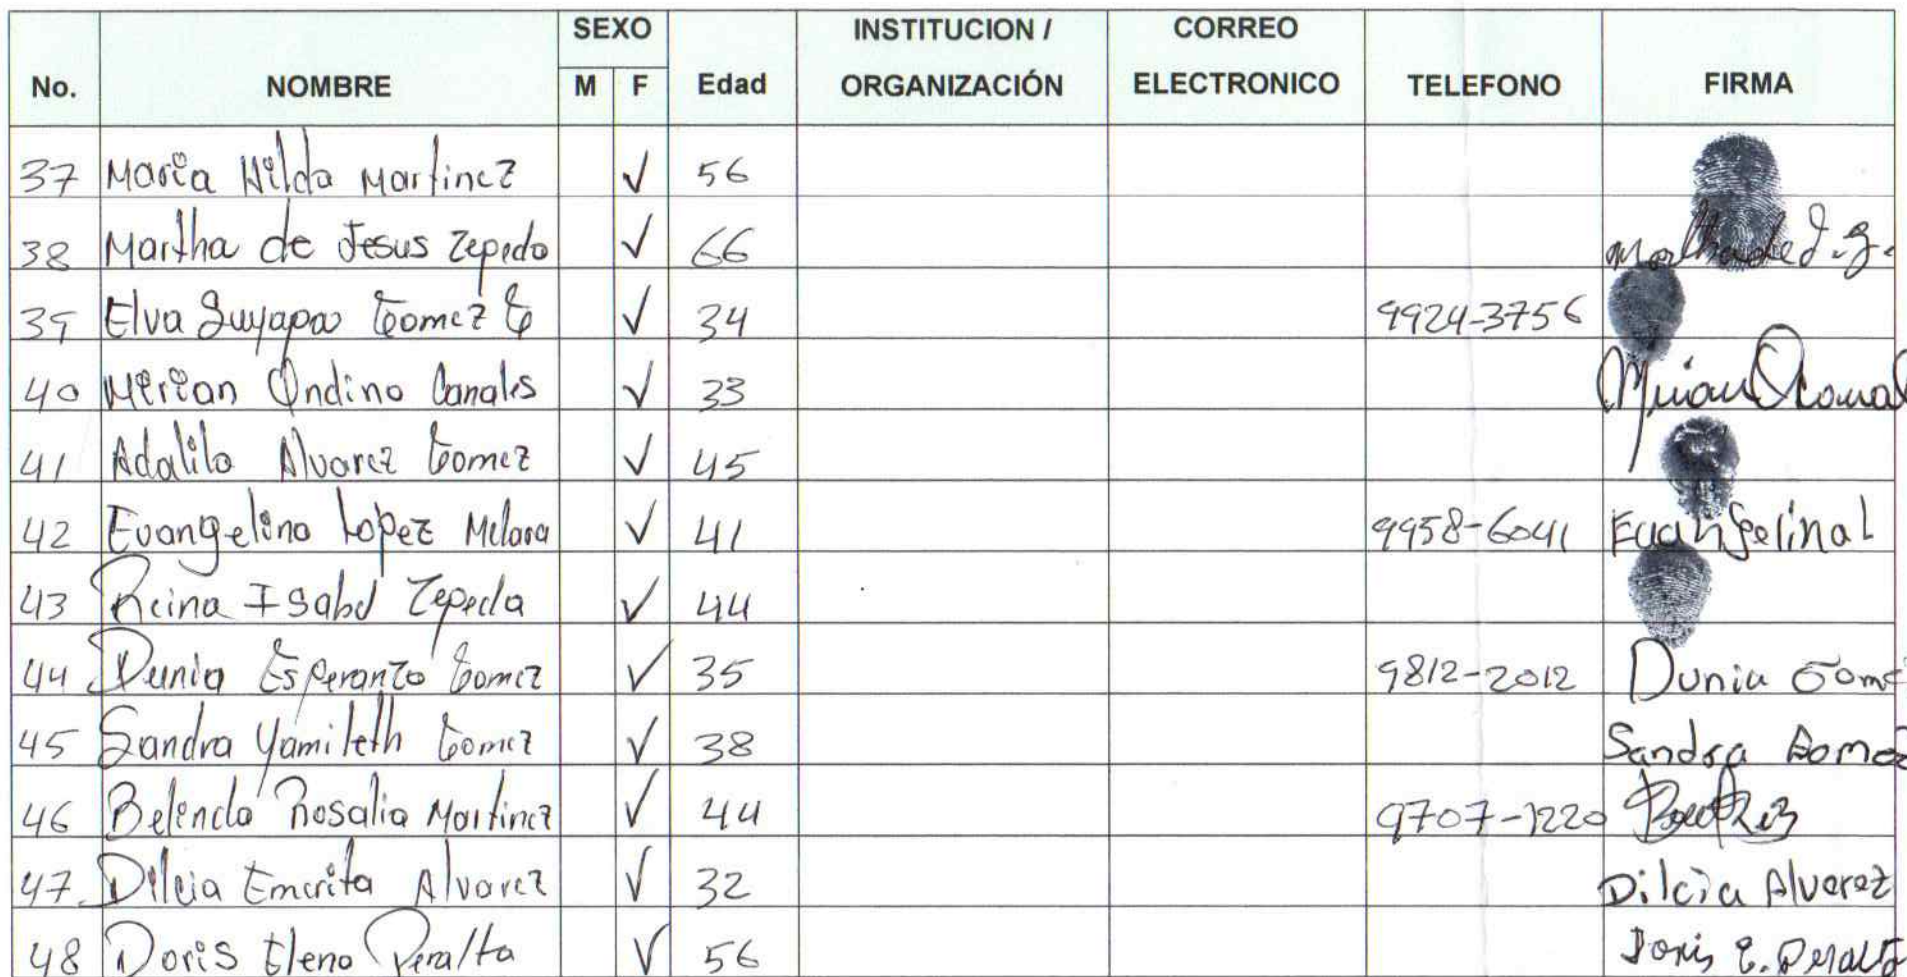 No. NOMBRE SEXO M F Edad INSTITUCION / ORGANIZACIÓN CORREO ELECTRONICO TELEFONO FIRMA
37 Maria Hilda Martinez ✓ 56
38 Martha de Jesus Zepeda ✓ 66 Martha de J. Z.
39 Elva Suyapa Gomez G ✓ 34 9924-3756
40 Mirian Ondina Canales ✓ 33 Mirian
41 Adalila Alvarez Gomez ✓ 45
42 Evangelina Lopez Melara ✓ 41 9958-6041 Evangelina L
43 Reina Isabel Zepeda ✓ 44
44 Dunia Esperanza Gomez ✓ 35 9812-2012 Dunia Gome
45 Sandra Yamileth Gomez ✓ 38 Sandra Gomez
46 Belinda Rosalia Martinez ✓ 44 9707-1220
47 Dilcia Emerita Alvarez ✓ 32 Dilcia Alvarez
48 Doris Elena Peralta ✓ 56 Doris E. Peralta